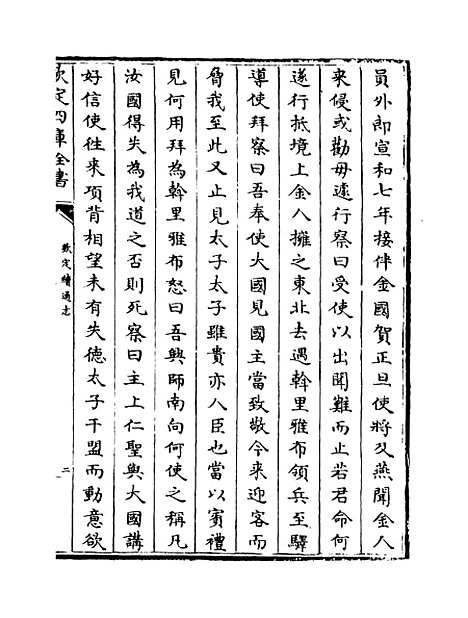 員外郎宣和七年接伴金國賀正旦使將及燕聞金人
来侵或勸毋遽行察曰受使以出聞難而止若君命何
遂行抵境上金人擁之東北去遇斡里雅布領兵至驛
導使拜察曰吾奉使大國見國主當致敬今来迎客而
脅我至此又止見太子太子雖貴亦人臣也當以賓禮
見何用拜為斡里雅布怒曰吾興師南向何使之稱凡
汝國得失為我道之否則死察曰主上仁聖與大國講
好信使往来項背相望未有失徳太子干盟而動意欲
欽定四庫全書
欽定續通志
二